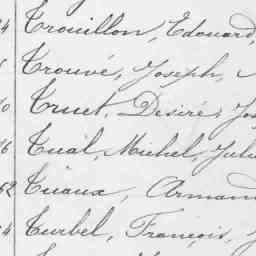 4 Trouillon, Edouard,
Trouvé, Joseph,
0 Truet, Désiré, Jos
6 Tual, Michel, Jule
62 Tuaux, Armand
4 Turbel, François, J